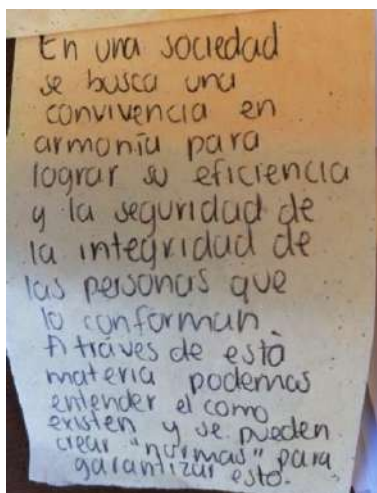 En una sociedad
se busca una
convivencia en
armonía para
lograr su eficiencia
y la seguridad de
la integridad de
las personas que
lo conforman.
A tráves de esta
materia podemos
entender el como
existen y se pueden
crear "normas" para
garantizar esto.